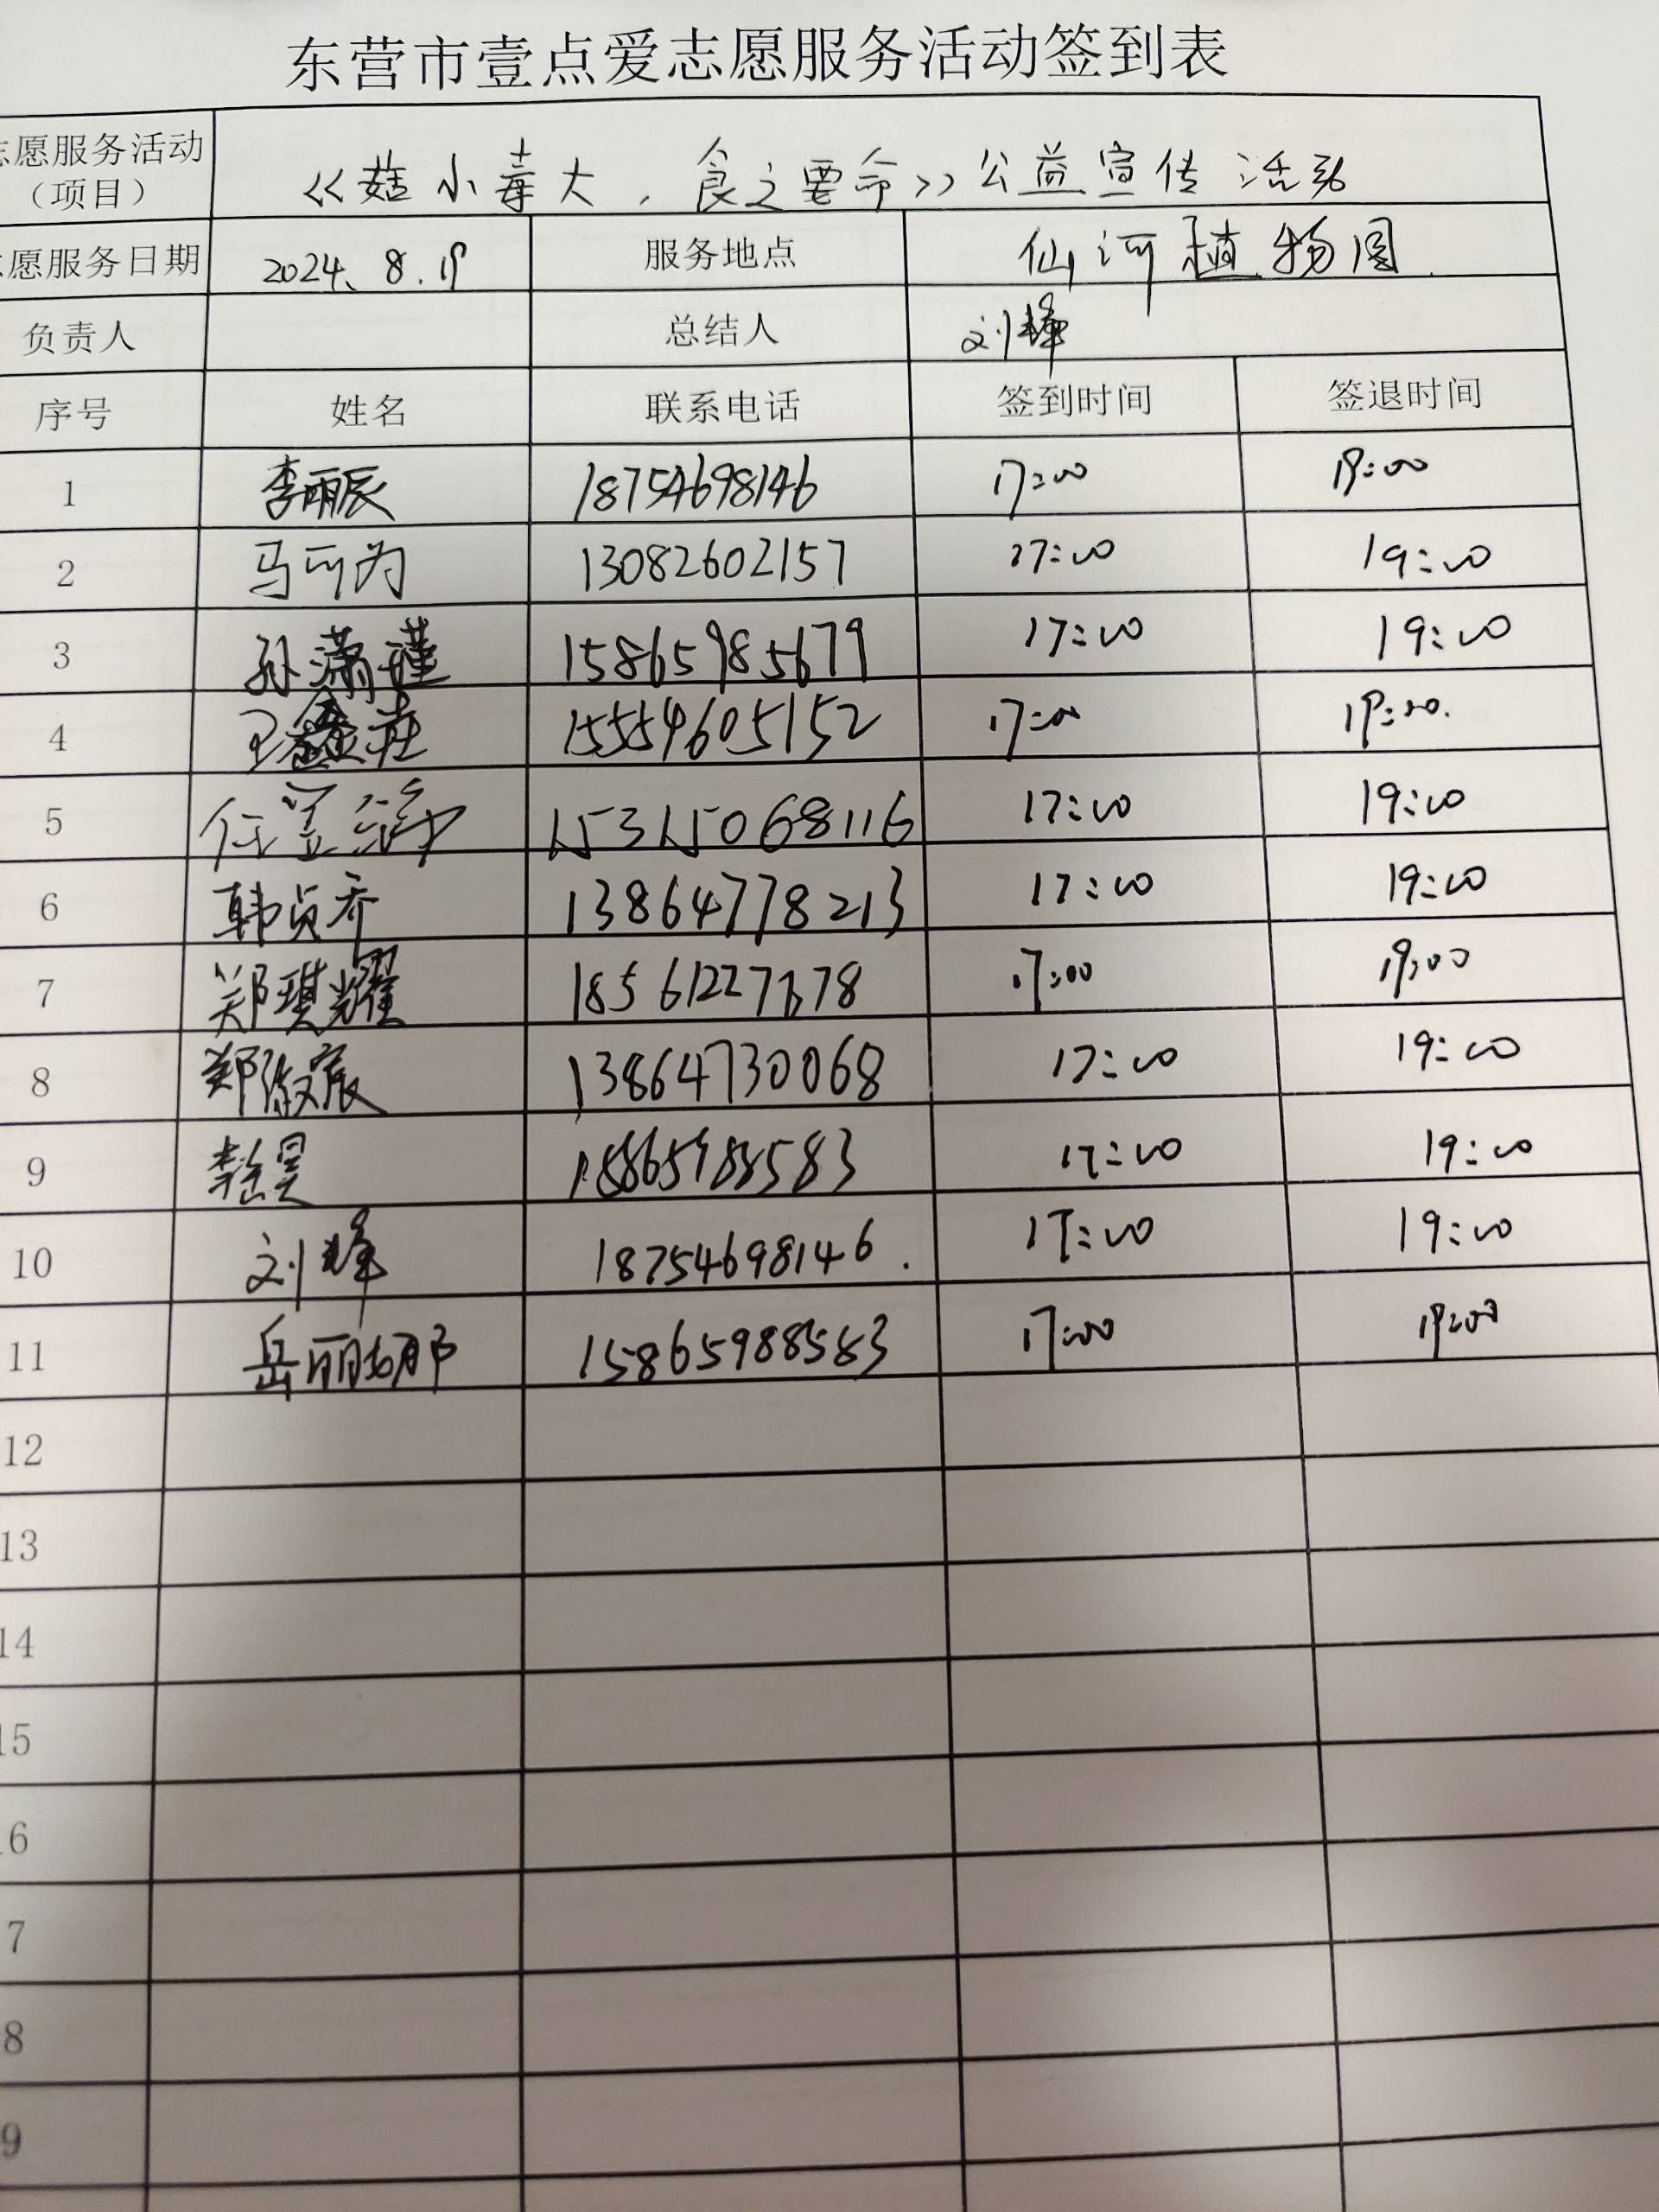 东营市壹点爱志愿服务活动签到表
志愿服务活动
（项目）
《菇小毒大，食之要命》公益宣传活动
志愿服务日期 2024、8.19 服务地点 仙河植物园
负责人 总结人 刘峰
序号 姓名 联系电话 签到时间 签退时间
1 李丽辰 18754698146 17:00 19:00
2 马可为 13082602157 17:00 19:00
3 孙潇瑾 15865985679 17:00 19:00
4 王鑫 15554605152 17:00 19:00
5 任 15315068116 17:00 19:00
6 韩贞乔 13864778213 17:00 19:00
7 郑琪耀 17:00 19:00
8 郑 宸 13864730068 17:00 19:00
9 昊 15865988583 17:00 19:00
10 刘峰 18754698146. 17:00 19:00
11 岳丽娜 15865988583 17:00 19:00
12
13
14
15
6
7
8
9